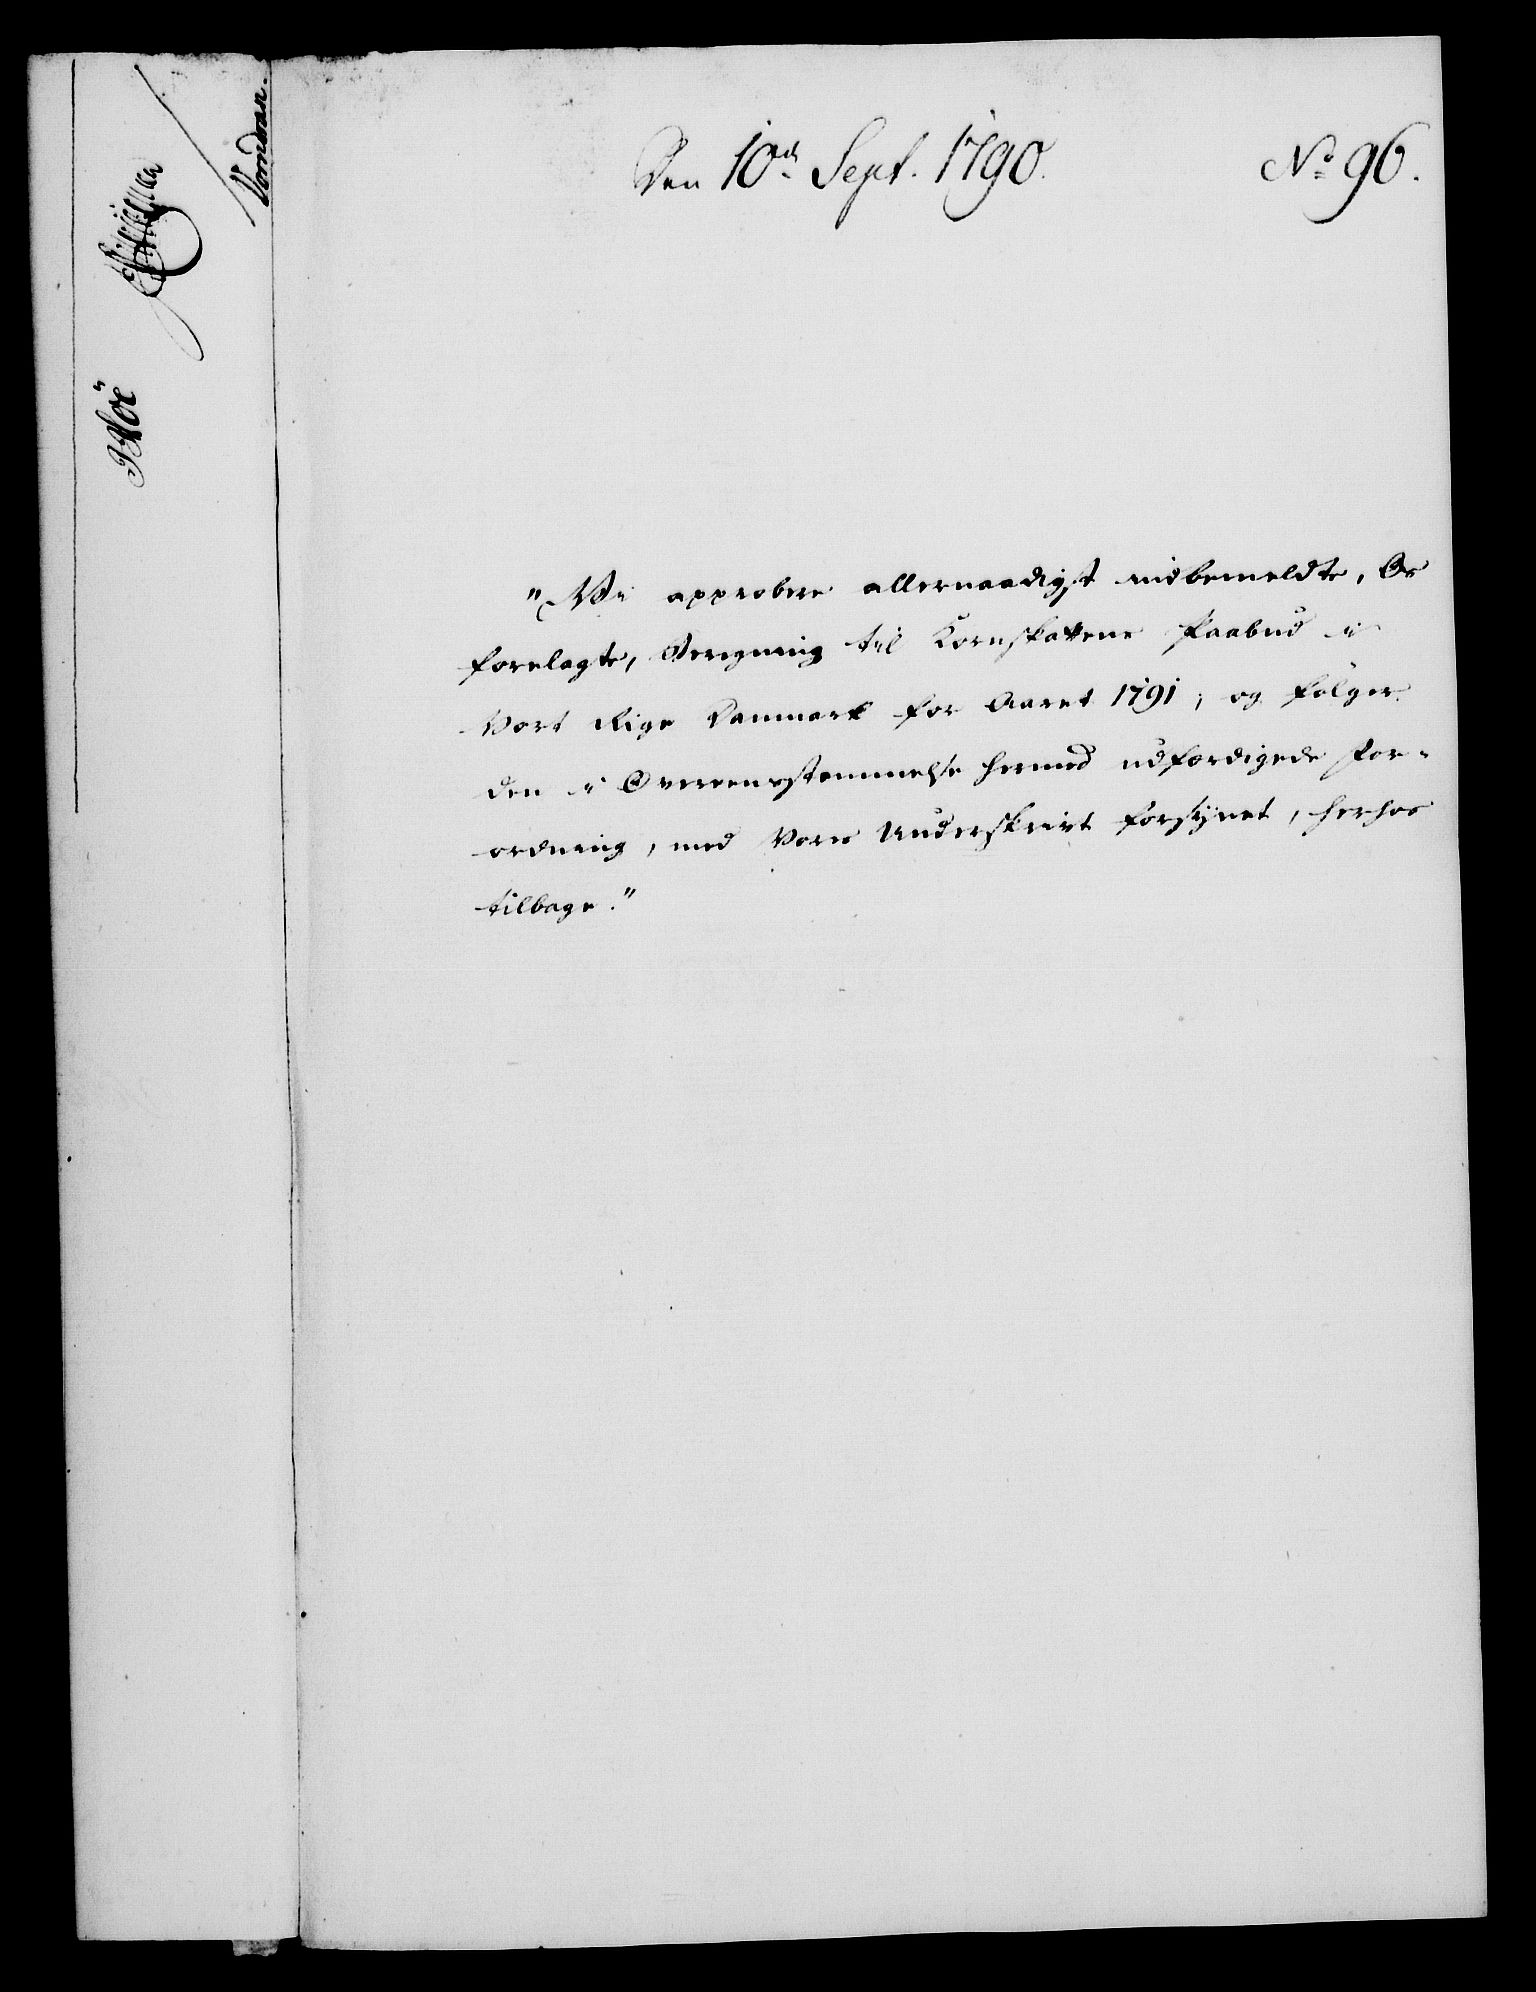 Den 10de Sept. 1790.
No 96.
"Vi approbere allernaadigst midbemeldte, Os
forelagte, Beregning til Kornskattens Paabud i
Vort Rige Danmark for Aaret 1791; og følger
den i Overeensstemmelse hermed udfærdigede For-
ordning, med Vores Underskrivt forsynet, herhos
tilbage."
Vorndran.